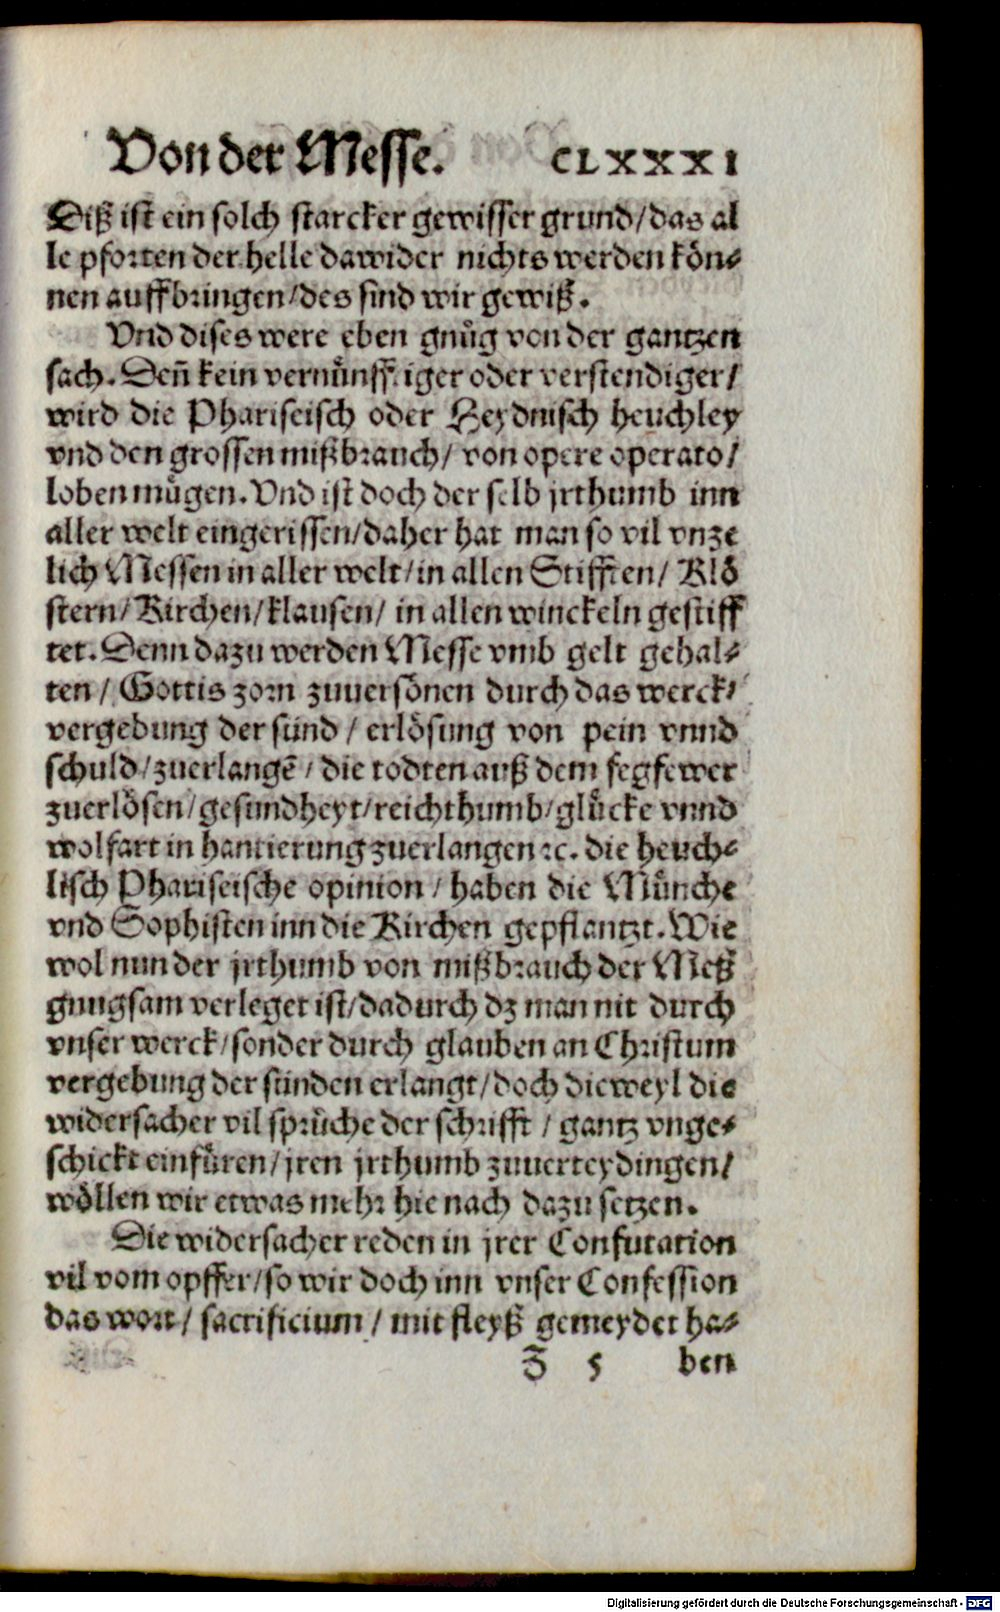 Von der Messe. CLXXXI
Diß ist ein solch starcker gewisser grund/das al
le pforten der helle dawider nichts werden kön-
nen auffbringen/des sind wir gewiß.
Vnd dises were eben gnůg von der gantzen
sach. Deñ kein vernünfftiger oder verstendiger/
wird die Phariseisch oder Heydnisch heuchley
vnd den grossen mißbrauch/ von opere operato/
loben mügen. Vnd ist doch der selb jrthumb inn
aller welt eingerissen/daher hat man so vil vnze
lich Messen in aller welt/in allen Stifften/ Klö
stern/Kirchen/klausen/ in allen winckeln gestiff
tet. Denn dazu werden Messe vmb gelt gehal-
ten / Gottis zorn zuuersönen durch das werck/
vergebung der sünd / erlösung von pein vnnd
schuld/zuerlangẽ/ die todten auß dem fegfewer
zuerlösen/gesundheyt/reichthumb/glücke vnnd
wolfart in hantierung zuerlangen ꝛc. die heuch-
lisch Phariseische opinion/ haben die Münche
vnd Sophisten inn die Kirchen gepflantzt. Wie
wol nun der jrthumb von mißbrauch der Meß
gnugsam verleget ist/dadurch dz man nit durch
vnser werck/sonder durch glauben an Christum
vergebung der sünden erlangt/doch dieweyl die
widersacher vil sprüche der schrifft / gantz vnge-
schickt einfüren/jren jrthumb zuuerteydingen/
wöllen wir etwas mehr hie nach dazu setzen.
Die widersacher reden in jrer Confutation
vil vom opffer/so wir doch inn vnser Confession
das wort/ sacrificium / mit fleyß gemeydet ha-
Z 5 ben
Digitalisierung gefördert durch die Deutsche Forschungsgemeinschaft - DFG